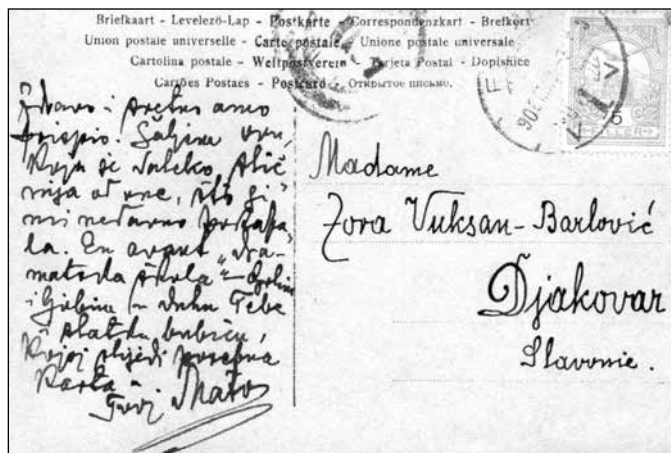 Briefkaart - Levelező-Lap - Postkarte - Correspondenzkart - Brefkort
Union postale universelle - Carte postale - Unione postale universale
Cartolina postale - Weltpostverein - Tarjeta Postal - Dopisnice
Cartões Postaes - Postcard - Открытое письмо.
Zdravo i sretno amo
prispio. Šaljem ovu,
koja je daleko slič
nija od one, što
mi nedavno
la. En avant
i Ljubim u duhu Tebe
i slatku bubicu,
kojoj slijedi posebna
karta
Tvoj Mato
Madame
Zora Vuksan-Barlović
Djakovar
Slavonie.
5
FILLER